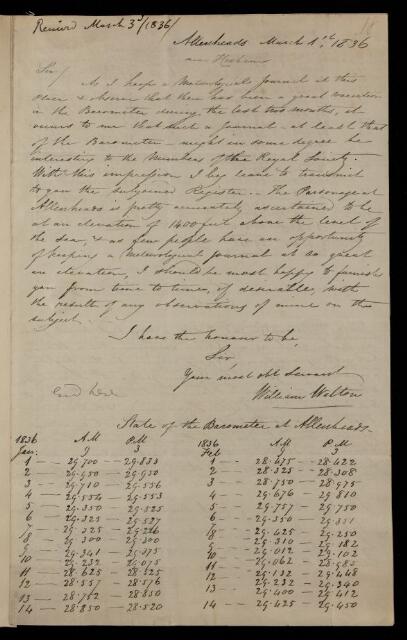 Received March 3d/1836/
Allenheads March 1st. 1836
near Hexham
Sir/
As I keep a Meteorological Journal at this
place & observe that there has been a great
in the Barometer during the last two months, it
occurs to me that such a Journal at least that
of the Barometer might in some degree be
interesting to the Members of the Royal Society.
With this impression I beg leave to transmit
to you the subjoined Register. The Parsonage at
Allenheads is pretty accurately ascertained to be
at an elevation of 1400 feet above the level of
the sea, & as few people have an opportunity
of keeping a meteorological Journal at so great
an elevation, I should be most happy to furnish
you from time to time, if desirable, with
the result of any observations of mine on the
subject.
I have the honour to be,
Sir
Your most obt Servant
William Walton
State of the Barometer at Allenheads
1836 A.M P.M 1836 A.M P.M
Jan. 9 3 Feb 9 3
1 — 29.700 — 29.833 1 — 28.675 — 28.422
2 — 29.950 — 29.950 2 — 28.325 — 28.308
3 — 29.710 — 29.556 3 — 28.750 — 28.975
4 — 29.554 — 29.553 4 — 29.676 — 29.810
5 — 29.350 — 29.525 5 — 29.757 — 29.750
6 — 29.325 — 29.527 6 — 29.350 — 29.331
7 — 29.325 — 29.226 7 — 29.425 — 29.250
8 — 29.300 — 29.300 8 — 29.310 — 29.182
9 — 29.341 — 29.375 9 — 29.012 — 29.102
10 — 29.232 — 29.075 10 — 29.062 — 28.985
11 — 28.625 — 28.525 11 — 29.132 — 29.448
12 — 28.557 — 28.576 12 — 29.232 — 29.340
13 — 28.752 — 28.850 13 — 29.400 — 29.412
14 — 28.850 — 28.520 14 — 29.425 — 29.450